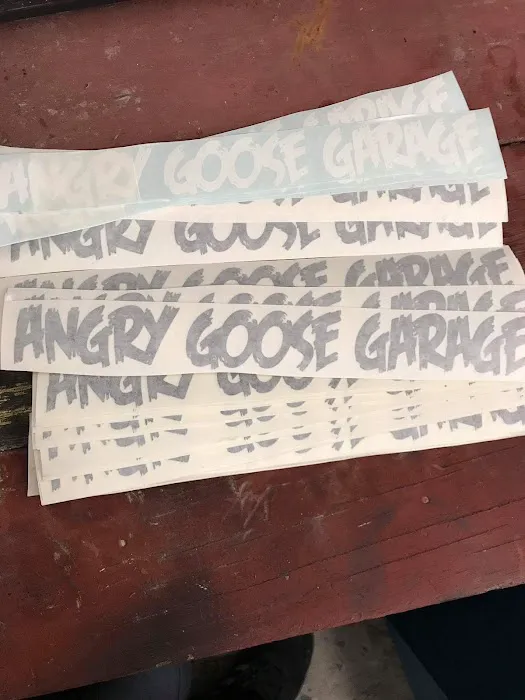 ANGRY GOOSE GARAGE
ANGRY GOOSE GARAGE
ANGRY GOOSE GARAGE
ANGRY GOOSE GARAGE
ANGRY